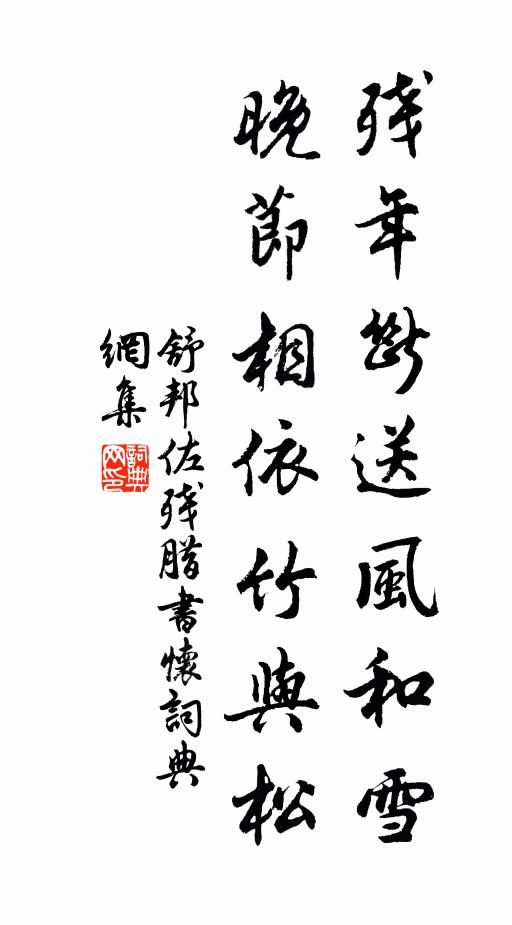 残年斷送風和雪
晚節相依竹與松
舒邦佐残腊書懷詞典
網集
詞典網印